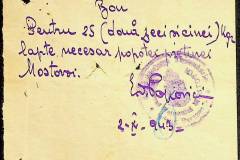 Bon
Pentru 25 (două zeci și cinci) Kgr
lapte, necesar popotei preturei
Mostovoi.
2-V-943